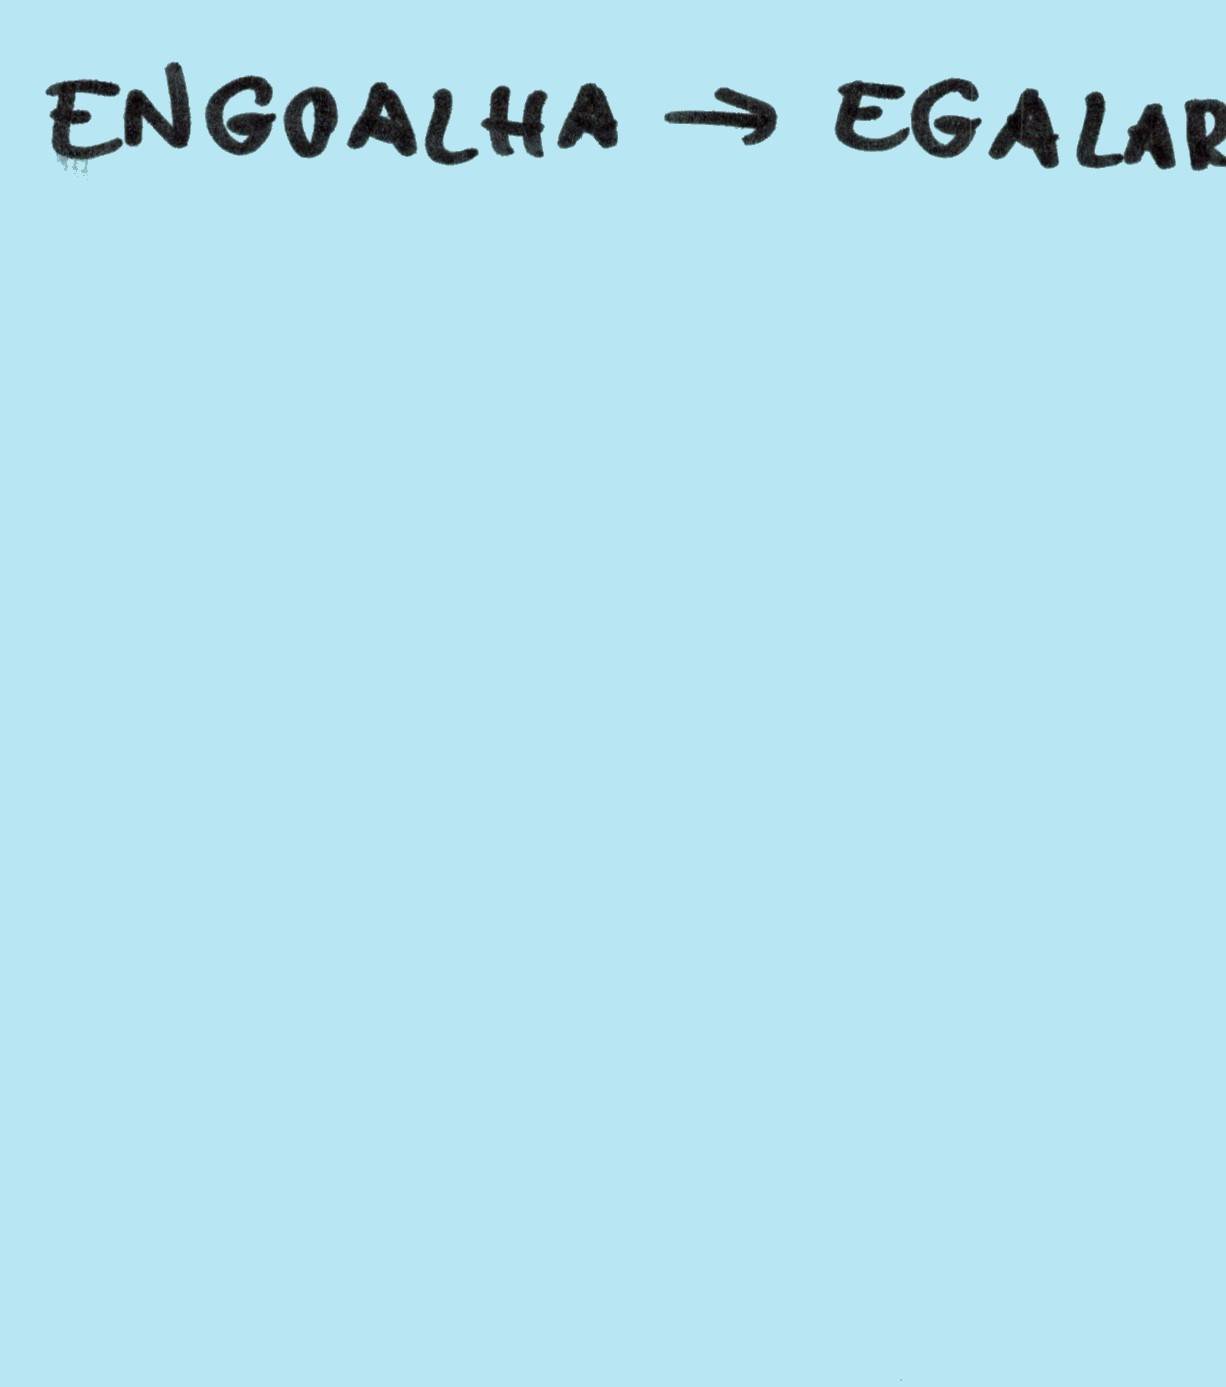 ENGOALHA → EGALAR